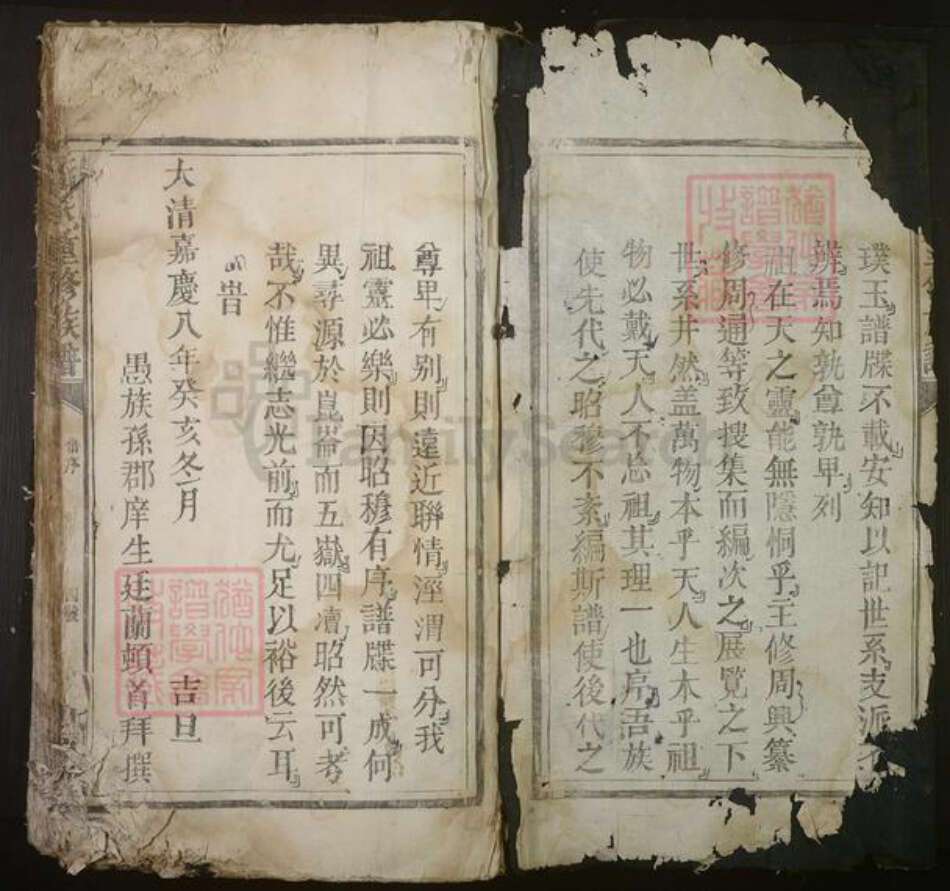 璞玉譜牒不載安知以記世系支派不
辨焉知孰尊孰卑列
祖在天之靈能無隱恫乎王修周興纂
修周通等致搜集而編次之展覽之下
世系井然蓋萬物本乎天人生本乎祖
物必戴天人不忘祖其理一也序吾族
使先代之昭穆不紊編斯譜使後代之
尊卑有别則遠近聯情涇渭可分我
祖靈必樂則因昭穆有序譜牒一成何
異尋源於崑崙而五嶽四瀆昭然可考
哉不惟繼志光前而尤足以裕後云耳
峕
大清嘉慶八年癸亥冬月 吉旦
愚族孫郡庠生廷蘭頓首拜撰
重修族譜
FamilySearch